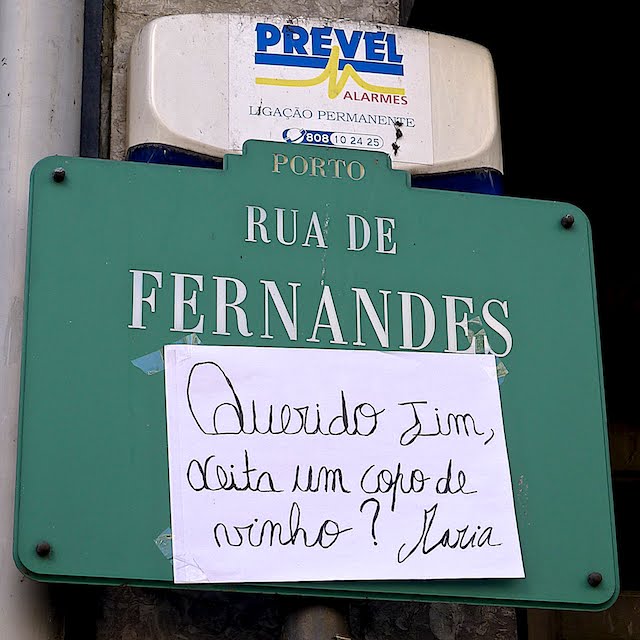 PREVÉL
ALARMES
LIGAÇÃO PERMANENTE
808 10 24 25
PORTO
RUA DE
FERNANDES
Querido Jim,
aceita um copo de
vinho? Maria